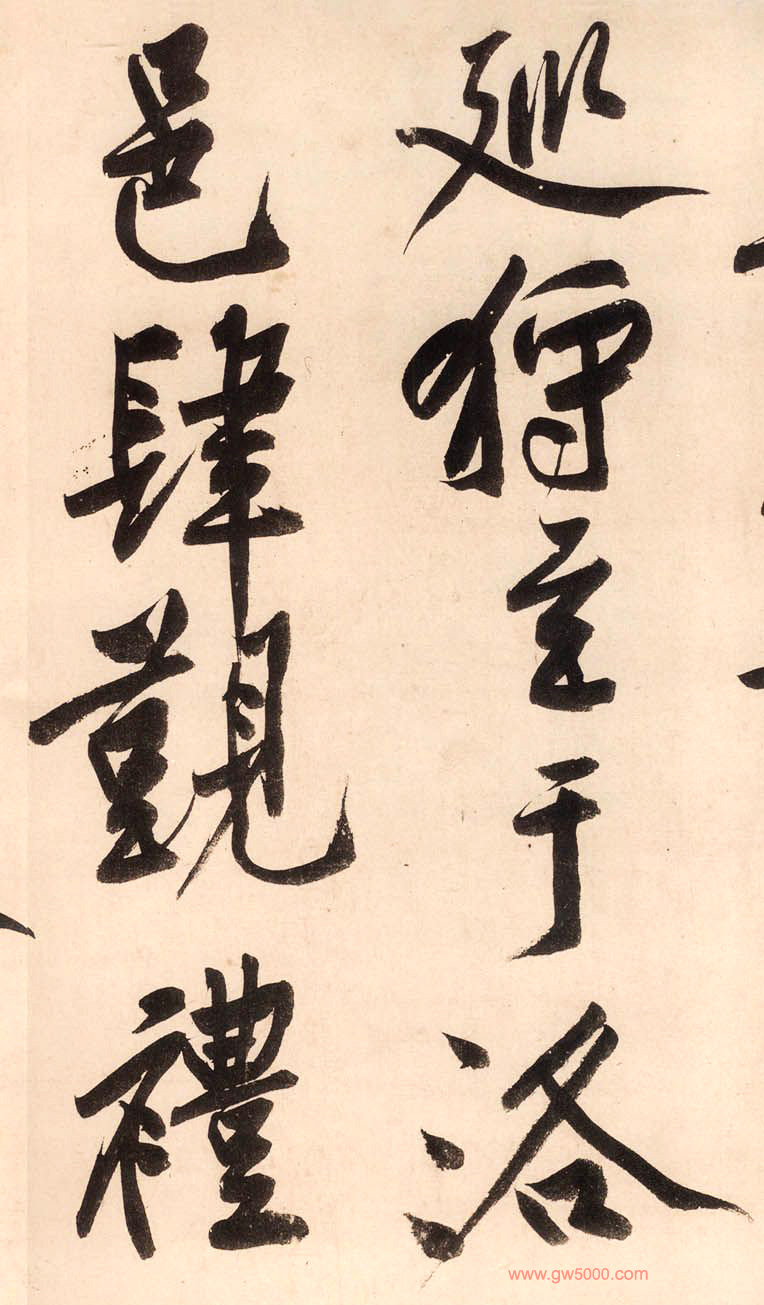 廵狩至于洛
邑肆覲禮
www.gw5000.com